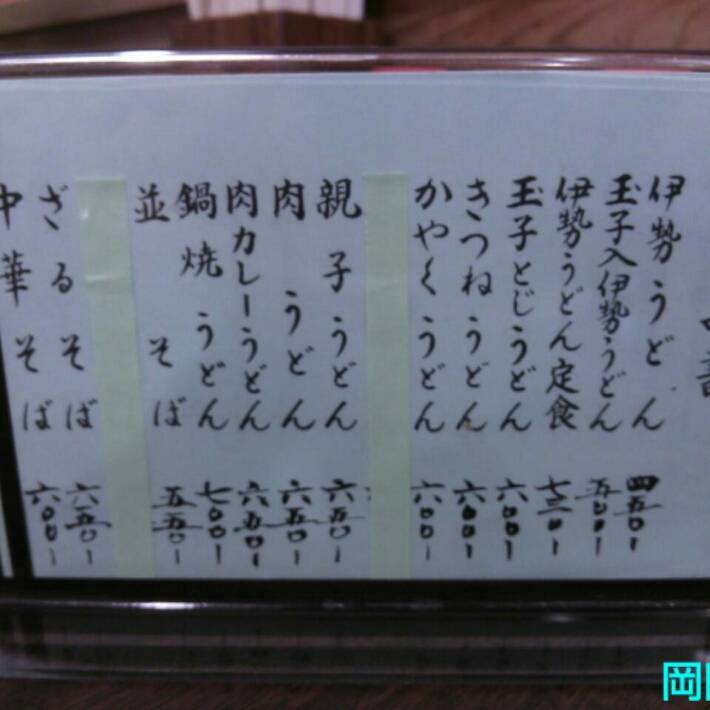 伊勢うどん 四五〇ー
玉子入伊勢うどん 五〇〇ー
伊勢うどん定食 七三〇ー
玉子とじうどん 六〇〇ー
きつねうどん 六〇〇ー
かやくうどん 六〇〇ー
親子うどん 六五〇ー
肉うどん 六五〇ー
肉カレーうどん 六五〇ー
鍋焼うどん 七〇〇ー
並そば 五五〇ー
ざるそば 六五〇ー
中華そば 六〇〇ー
岡